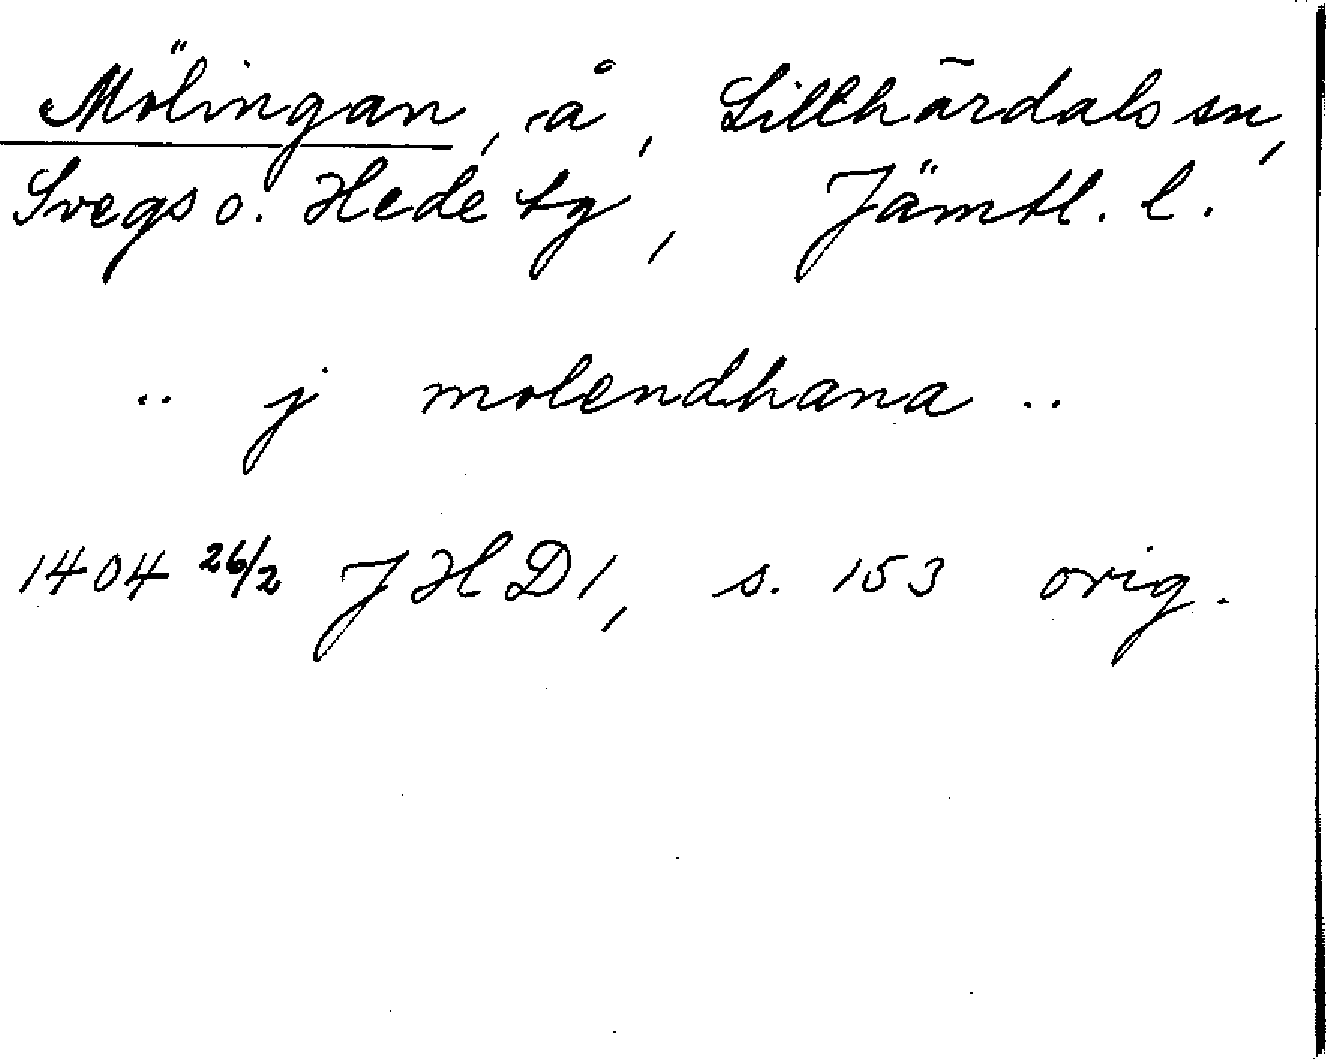 Mölingan, å, Lillhärdals sn,
Svegs o. Hede tg, Jämtl. l.
.. j molendhana ..
1404 26/2 JHD1, s. 153 orig.